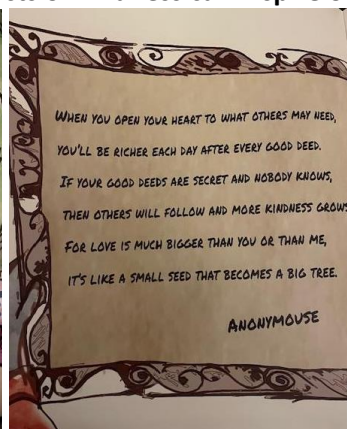 WHEN YOU OPEN YOUR HEART TO WHAT OTHERS MAY NEED,
YOU'LL BE RICHER EACH DAY AFTER EVERY GOOD DEED.
IF YOUR GOOD DEEDS ARE SECRET AND NOBODY KNOWS,
THEN OTHERS WILL FOLLOW AND MORE KINDNESS GROWS
FOR LOVE IS MUCH BIGGER THAN YOU OR THAN ME,
IT'S LIKE A SMALL SEED THAT BECOMES A BIG TREE.
ANONYMOUSE